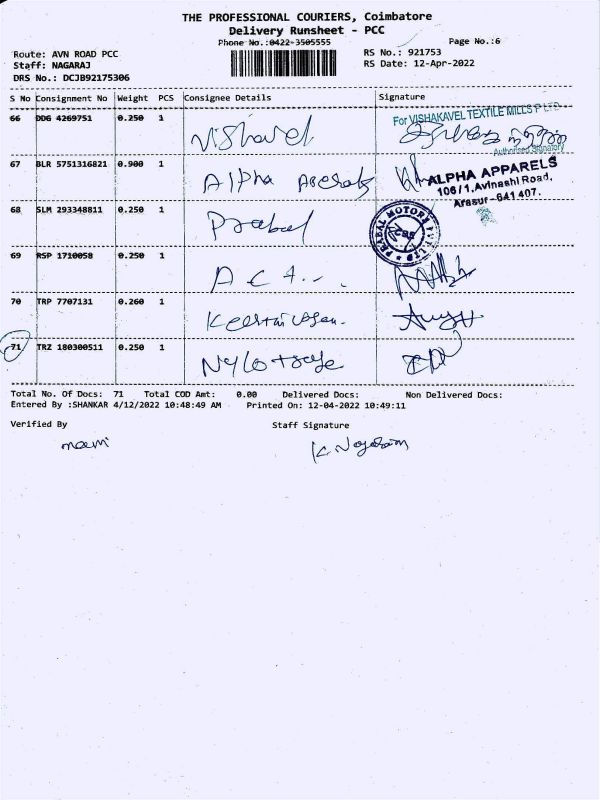 THE PROFESSIONAL COURIERS, Coimbatore
Delivery Runsheet - PCC
Phone No.:0422-3505555
Page No.:6
Route: AVN ROAD PCC
Staff: NAGARAJ
DRS No.: DCJB92175306
RS No.: 921753
RS Date: 12-Apr-2022
S No Consignment No Weight PCS Consignee Details Signature
66 DDG 4269751 0.250 1 Vishavel
For VISHAKAVEL TEXTILE MILLS P LTD
Authorised Signatory
67 BLR 5751316821 0.900 1 Alpha
ALPHA APPARELS
106/1,Avinashi Road,
Arasur-641 407.
68 SLM 293348811 0.250 1 Prabal
PRABAL MOTORS PVT LTD
CBE
69 RSP 1710058 0.250 1 A C T
70 TRP 7707131 0.260 1
71 TRZ 180300511 0.250 1
Total No. Of Docs: 71 Total COD Amt: 0.00 Delivered Docs: Non Delivered Docs:
Entered By :SHANKAR 4/12/2022 10:48:49 AM Printed On: 12-04-2022 10:49:11
Verified By Staff Signature
K. Nagaraj